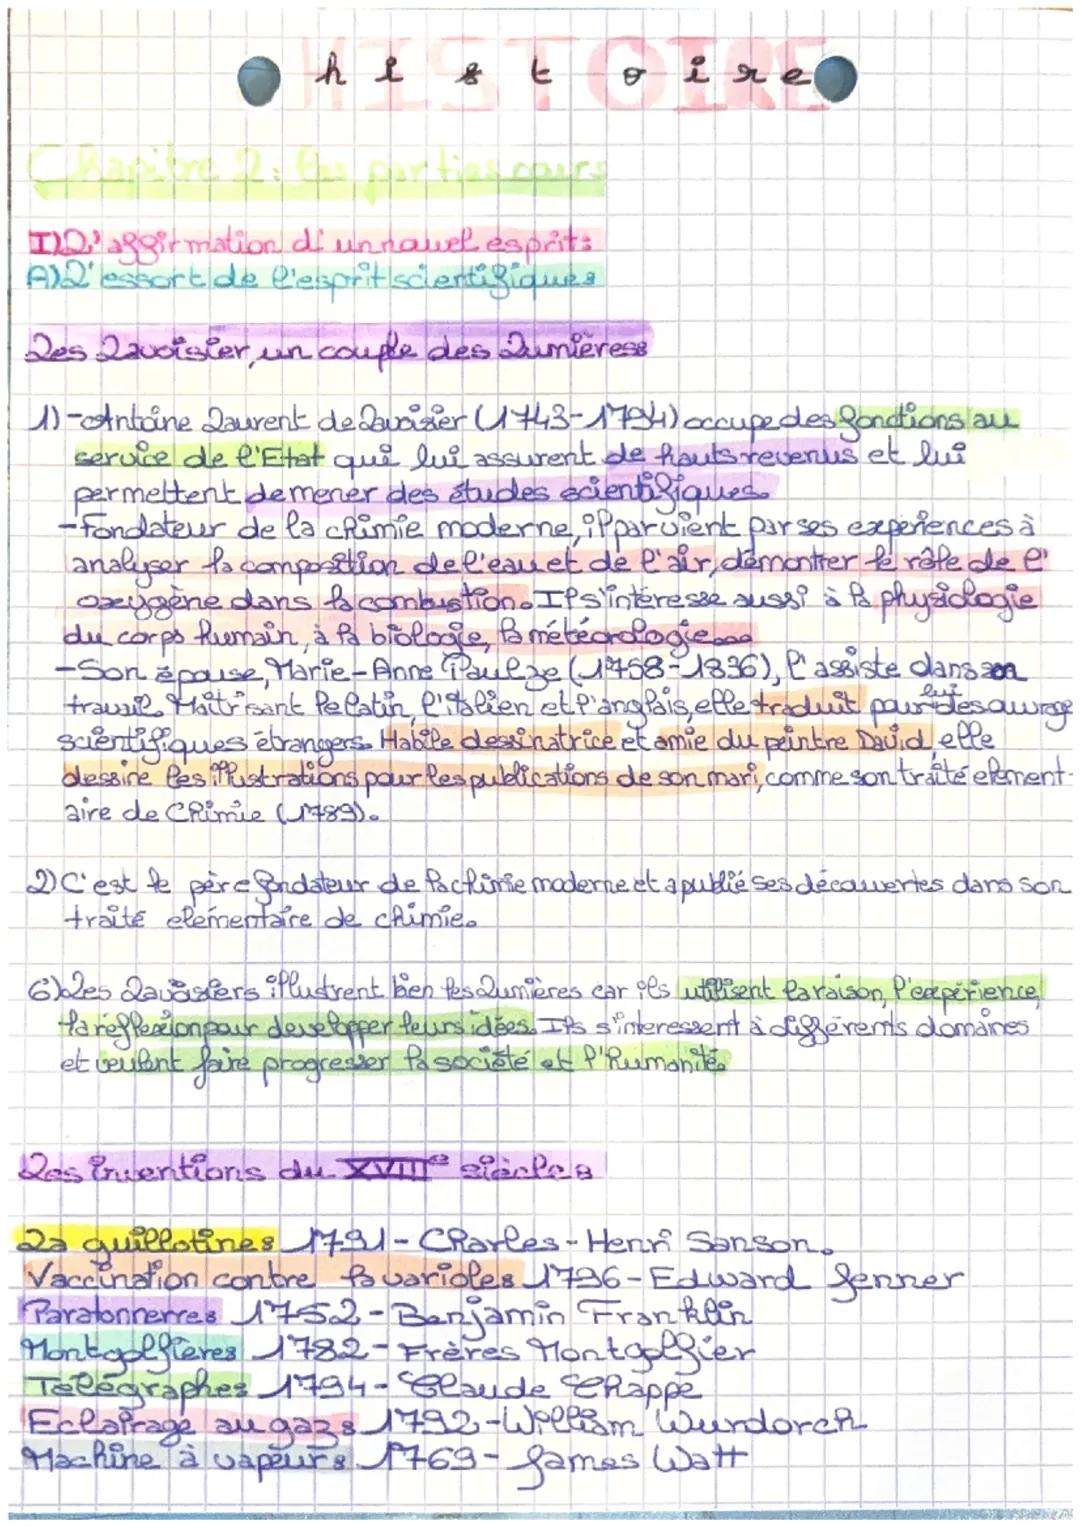 HISTOIRE
histoire
Chapitre 2: les parties cours
I) L'affirmation d'un nouvel esprit:
A) L'essort de l'esprit scientifique:
Les Lavoisier, un couple des Lumières:
1) -Antoine Laurent de Lavoisier (1743-1794) occupe des fonctions au
service de l'Etat qui lui assurent de hauts revenus et lui
permettent de mener des études scientifiques.
-Fondateur de la chimie moderne, il parvient par ses expériences à
analyser la composition de l'eau et de l'air, démontrer le rôle de l'
oxygène dans la combustion. Il s'intéresse aussi à la physiologie
du corps humain, à la biologie, la météorologie...
-Son épouse, Marie-Anne Paulze (1758-1836), l'assiste dans son
travail. Maîtrisant le latin, l'italien et l'anglais, elle traduit pour lui des ouvrage
scientifiques étrangers. Habile dessinatrice et amie du peintre David, elle
dessine les illustrations pour les publications de son mari, comme son traité élement-
aire de Chimie (1789).
2) C'est le père fondateur de la chimie moderne et a publié ses découvertes dans son
traité elémentaire de chimie.
6) Les Lavoisiers illustrent bien les Lumières car ils utilisent la raison, l'expérience,
la reflexion pour developper leurs idées. Ils s'interessent à différents domaines
et veulent faire progresser la société et l'humanité.
Les inventions du XVIIIe siècle:
La guillotine: 1791- Charles-Henri Sanson.
Vaccination contre la variole: 1796- Edward Jenner
Paratonnerre: 1752- Benjamin Franklin
Montgolfière: 1782- Frères Montgolfier
Télégraphe: 1794- Claude Chappe
Eclairage au gaz: 1792- William Wurdoch
Machine à vapeur: 1769- James Watt